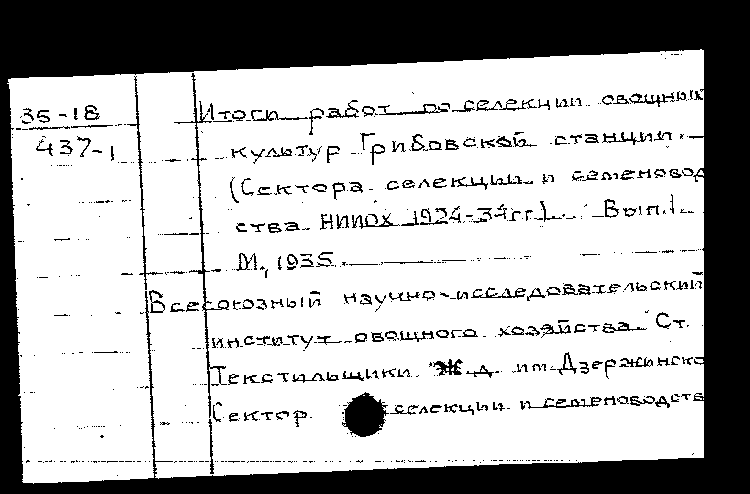 35-18
437-1
Итоги работ по селекции овощных
культур Грибовской станции.
(Сектора селекции и семеновод
ства НИИОХ 1924-34гг.). Вып.1.
М., 1935.
Всесоюзный научно-исследовательский
институт овощного хозяйства Ст.
Текстильщики Ж.д. им.Дзержинско
Сектор селекции и семеноводств